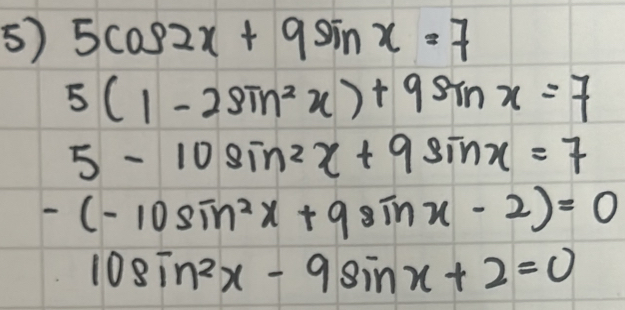 5) 5cos2x + 9sinx = 7
5(1 - 2sin²x) + 9sinx = 7
5 - 10sin²x + 9sinx = 7
-(-10sin²x + 9sinx - 2) = 0
10sin²x - 9sinx + 2 = 0